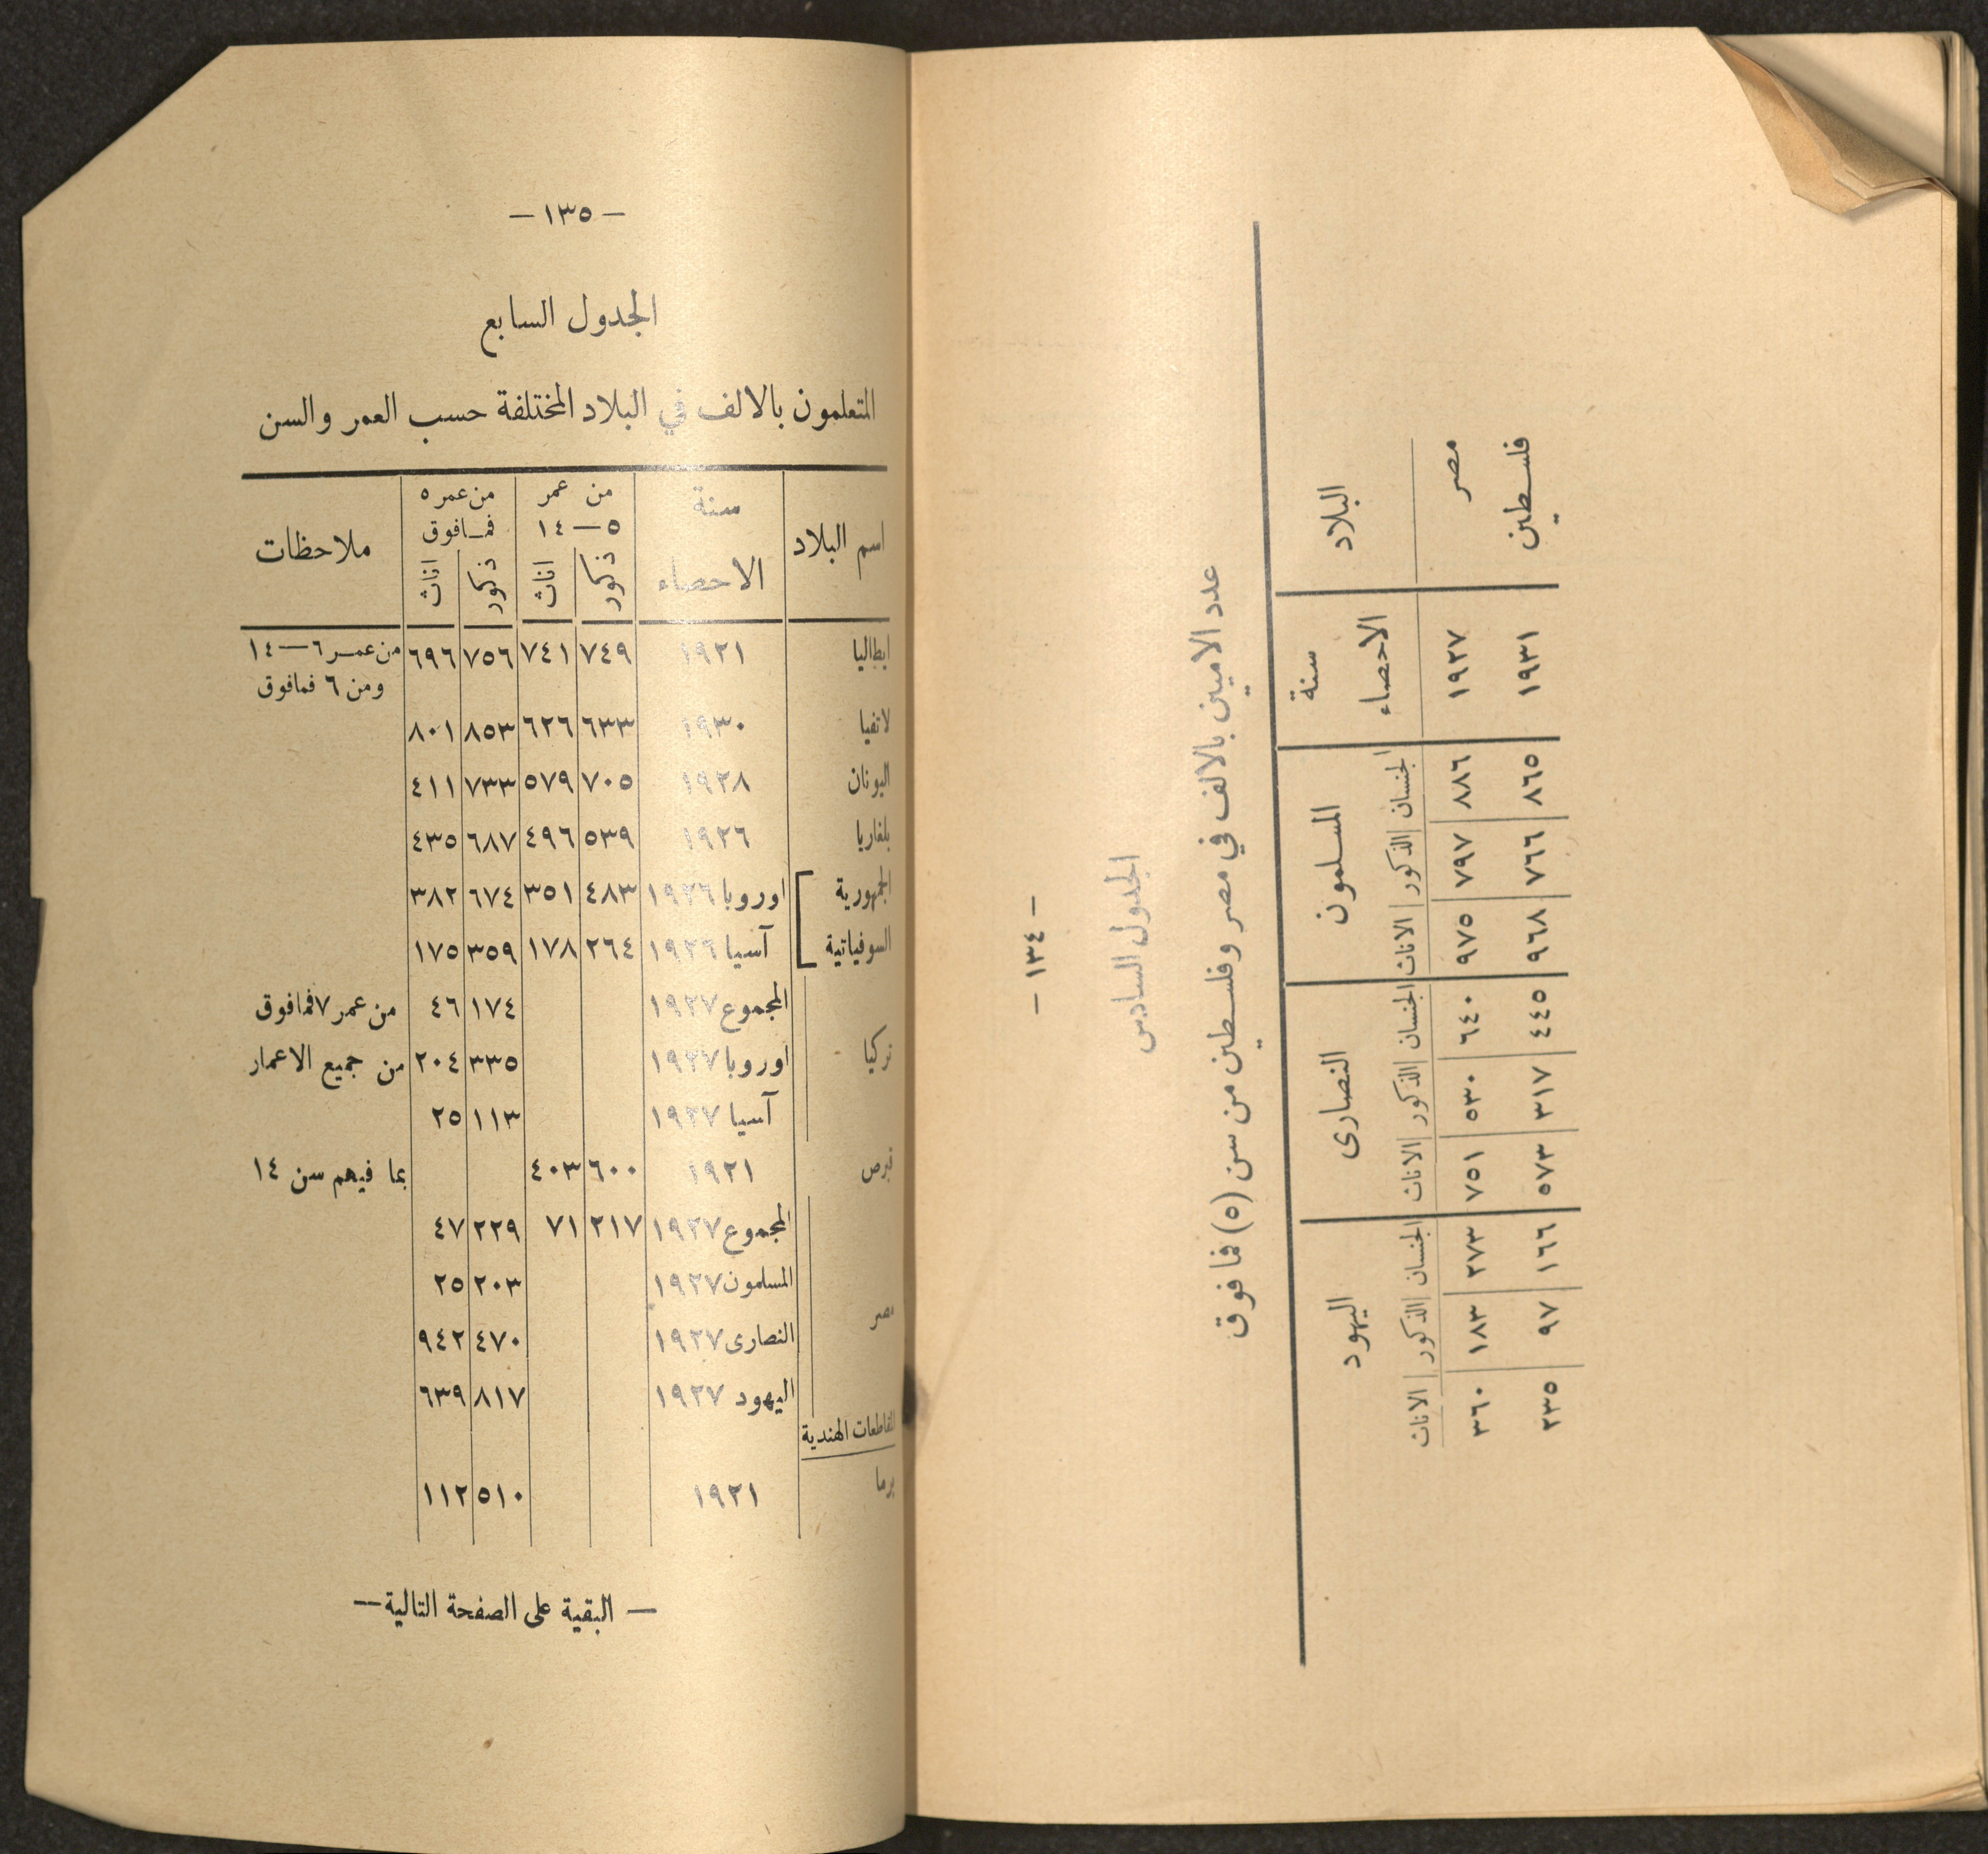 — ١٣٤ —
الجدول السادس
عدد الاميين بالالف في مصر وفلسطين من سن (٥) فما فوق
البلاد | سنة الاحصاء | المسلمون | النصارى | اليهود
الجنسان | الذكور | الاناث | الجنسان | الذكور | الاناث | الجنسان | الذكور | الاناث
مصر | ١٩٢٧ | ٨٨٦ | ٧٩٧ | ٩٧٥ | ٦٤٠ | ٥٣٠ | ٧٥١ | ٢٧٣ | ١٨٣ | ٣٦٠
فلسطين | ١٩٣١ | ٨٦٥ | ٧٦٦ | ٩٦٨ | ٤٤٥ | ٣١٧ | ٥٧٣ | ١٦٦ | ٩٧ | ٢٣٥
— ١٣٥ —
الجدول السابع
المتعلمون بالالف في البلاد المختلفة حسب العمر والسن
اسم البلاد | سنة الاحصاء | من عمر ٥—١٤ | من عمر ٥ فمافوق | ملاحظات
ذكور | اناث | ذكور | اناث
ايطاليا | ١٩٢١ | ٧٤٩ | ٧٤١ | ٧٥٦ | ٦٩٦ | من عمر ٦—١٤
ومن ٦ فمافوق
لاتفيا | ١٩٣٠ | ٦٣٣ | ٦٢٦ | ٨٥٣ | ٨٠١
اليونان | ١٩٢٨ | ٧٠٥ | ٥٧٩ | ٧٣٣ | ٤١١
بلغاريا | ١٩٢٦ | ٥٣٩ | ٤٩٦ | ٦٨٧ | ٤٣٥
الجمهورية | اوروبا ١٩٢٦ | ٤٨٣ | ٣٥١ | ٦٧٤ | ٣٨٢
السوفياتية | آسيا ١٩٢٦ | ٢٦٤ | ١٧٨ | ٣٥٩ | ١٧٥
المجموع ١٩٢٧ | ١٧٤ | ٤٦ | من عمر ٧ فمافوق
تركيا | اوروبا ١٩٢٧ | ٣٣٥ | ٢٠٤ | من جميع الاعمار
آسيا ١٩٢٧ | ١١٣ | ٢٥
قبرص | ١٩٢١ | ٦٠٠ | ٤٠٣ | بما فيهم سن ١٤
المجموع ١٩٢٧ | ٢١٧ | ٧١ | ٢٢٩ | ٤٧
المسلمون ١٩٢٧ | ٢٠٣ | ٢٥
مصر | النصارى ١٩٢٧ | ٤٧٠ | ٩٤٢
اليهود ١٩٢٧ | ٨١٧ | ٦٣٩
المقاطعات الهندية
برما | ١٩٢١ | ٥١٠ | ١١٢
— البقية على الصفحة التالية —